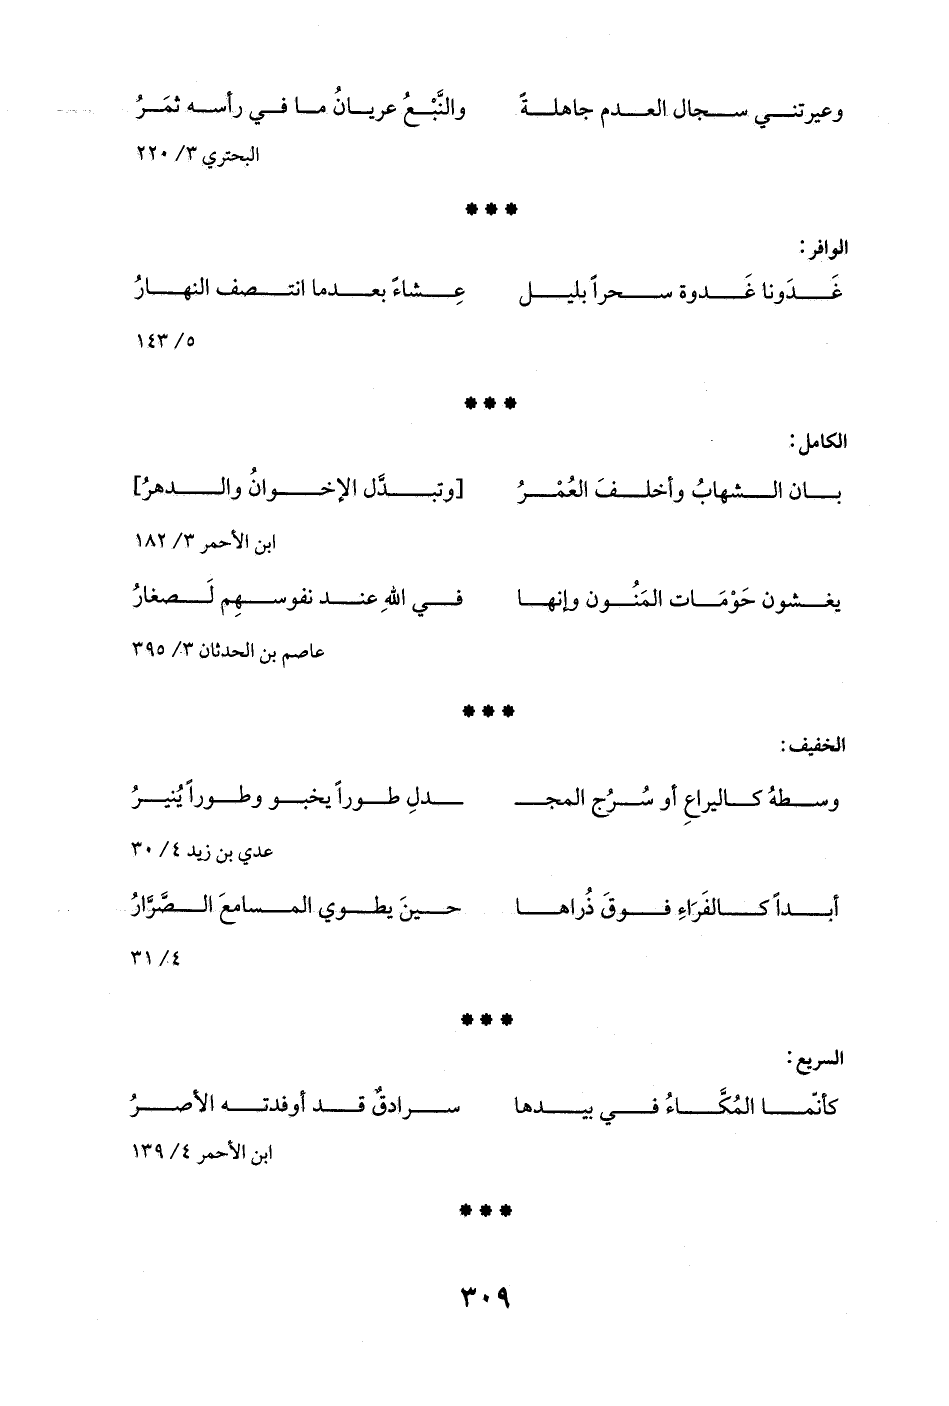 وعيرتني سجال العدم جاهلةً والنَّبْعُ عريانُ ما في رأسه ثمَرُ
البحتري ٣/ ٢٢٠
***
الوافر:
غَدَونا غَدوة سحراً بليل عِشاءً بعدما انتصف النهارُ
٥/ ١٤٣
***
الكامل:
بان الشهابُ وأخلفَ العُمْرُ [وتبدَّل الإخوانُ والدهرُ]
ابن الأحمر ٣/ ١٨٢
يغشون حَوْمَات المَنُون وإنها في اللهِ عند نفوسهِم لَصغارُ
عاصم بن الحدثان ٣/ ٣٩٥
***
الخفيف:
وسطهُ كاليراعِ أو سُرُج المجـ ـدلِ طوراً يخبو وطوراً يُنيرُ
عدي بن زيد ٤/ ٣٠
أبداً كالفَرَاءِ فوقَ ذُراها حينَ يطوي المسامعَ الصَّرَّارُ
٤/ ٣١
***
السريع:
كأنّما المُكَّاءُ في بيدها سرادقٌ قد أوفدته الأصرُ
ابن الأحمر ٤/ ١٣٩
***
٣٠٩